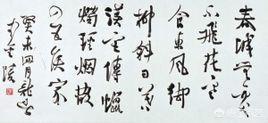 春城無處
不飛花寒
食東風御
柳斜日暮
漢宮傳蠟
燭輕烟散
入五侯家
癸未四月